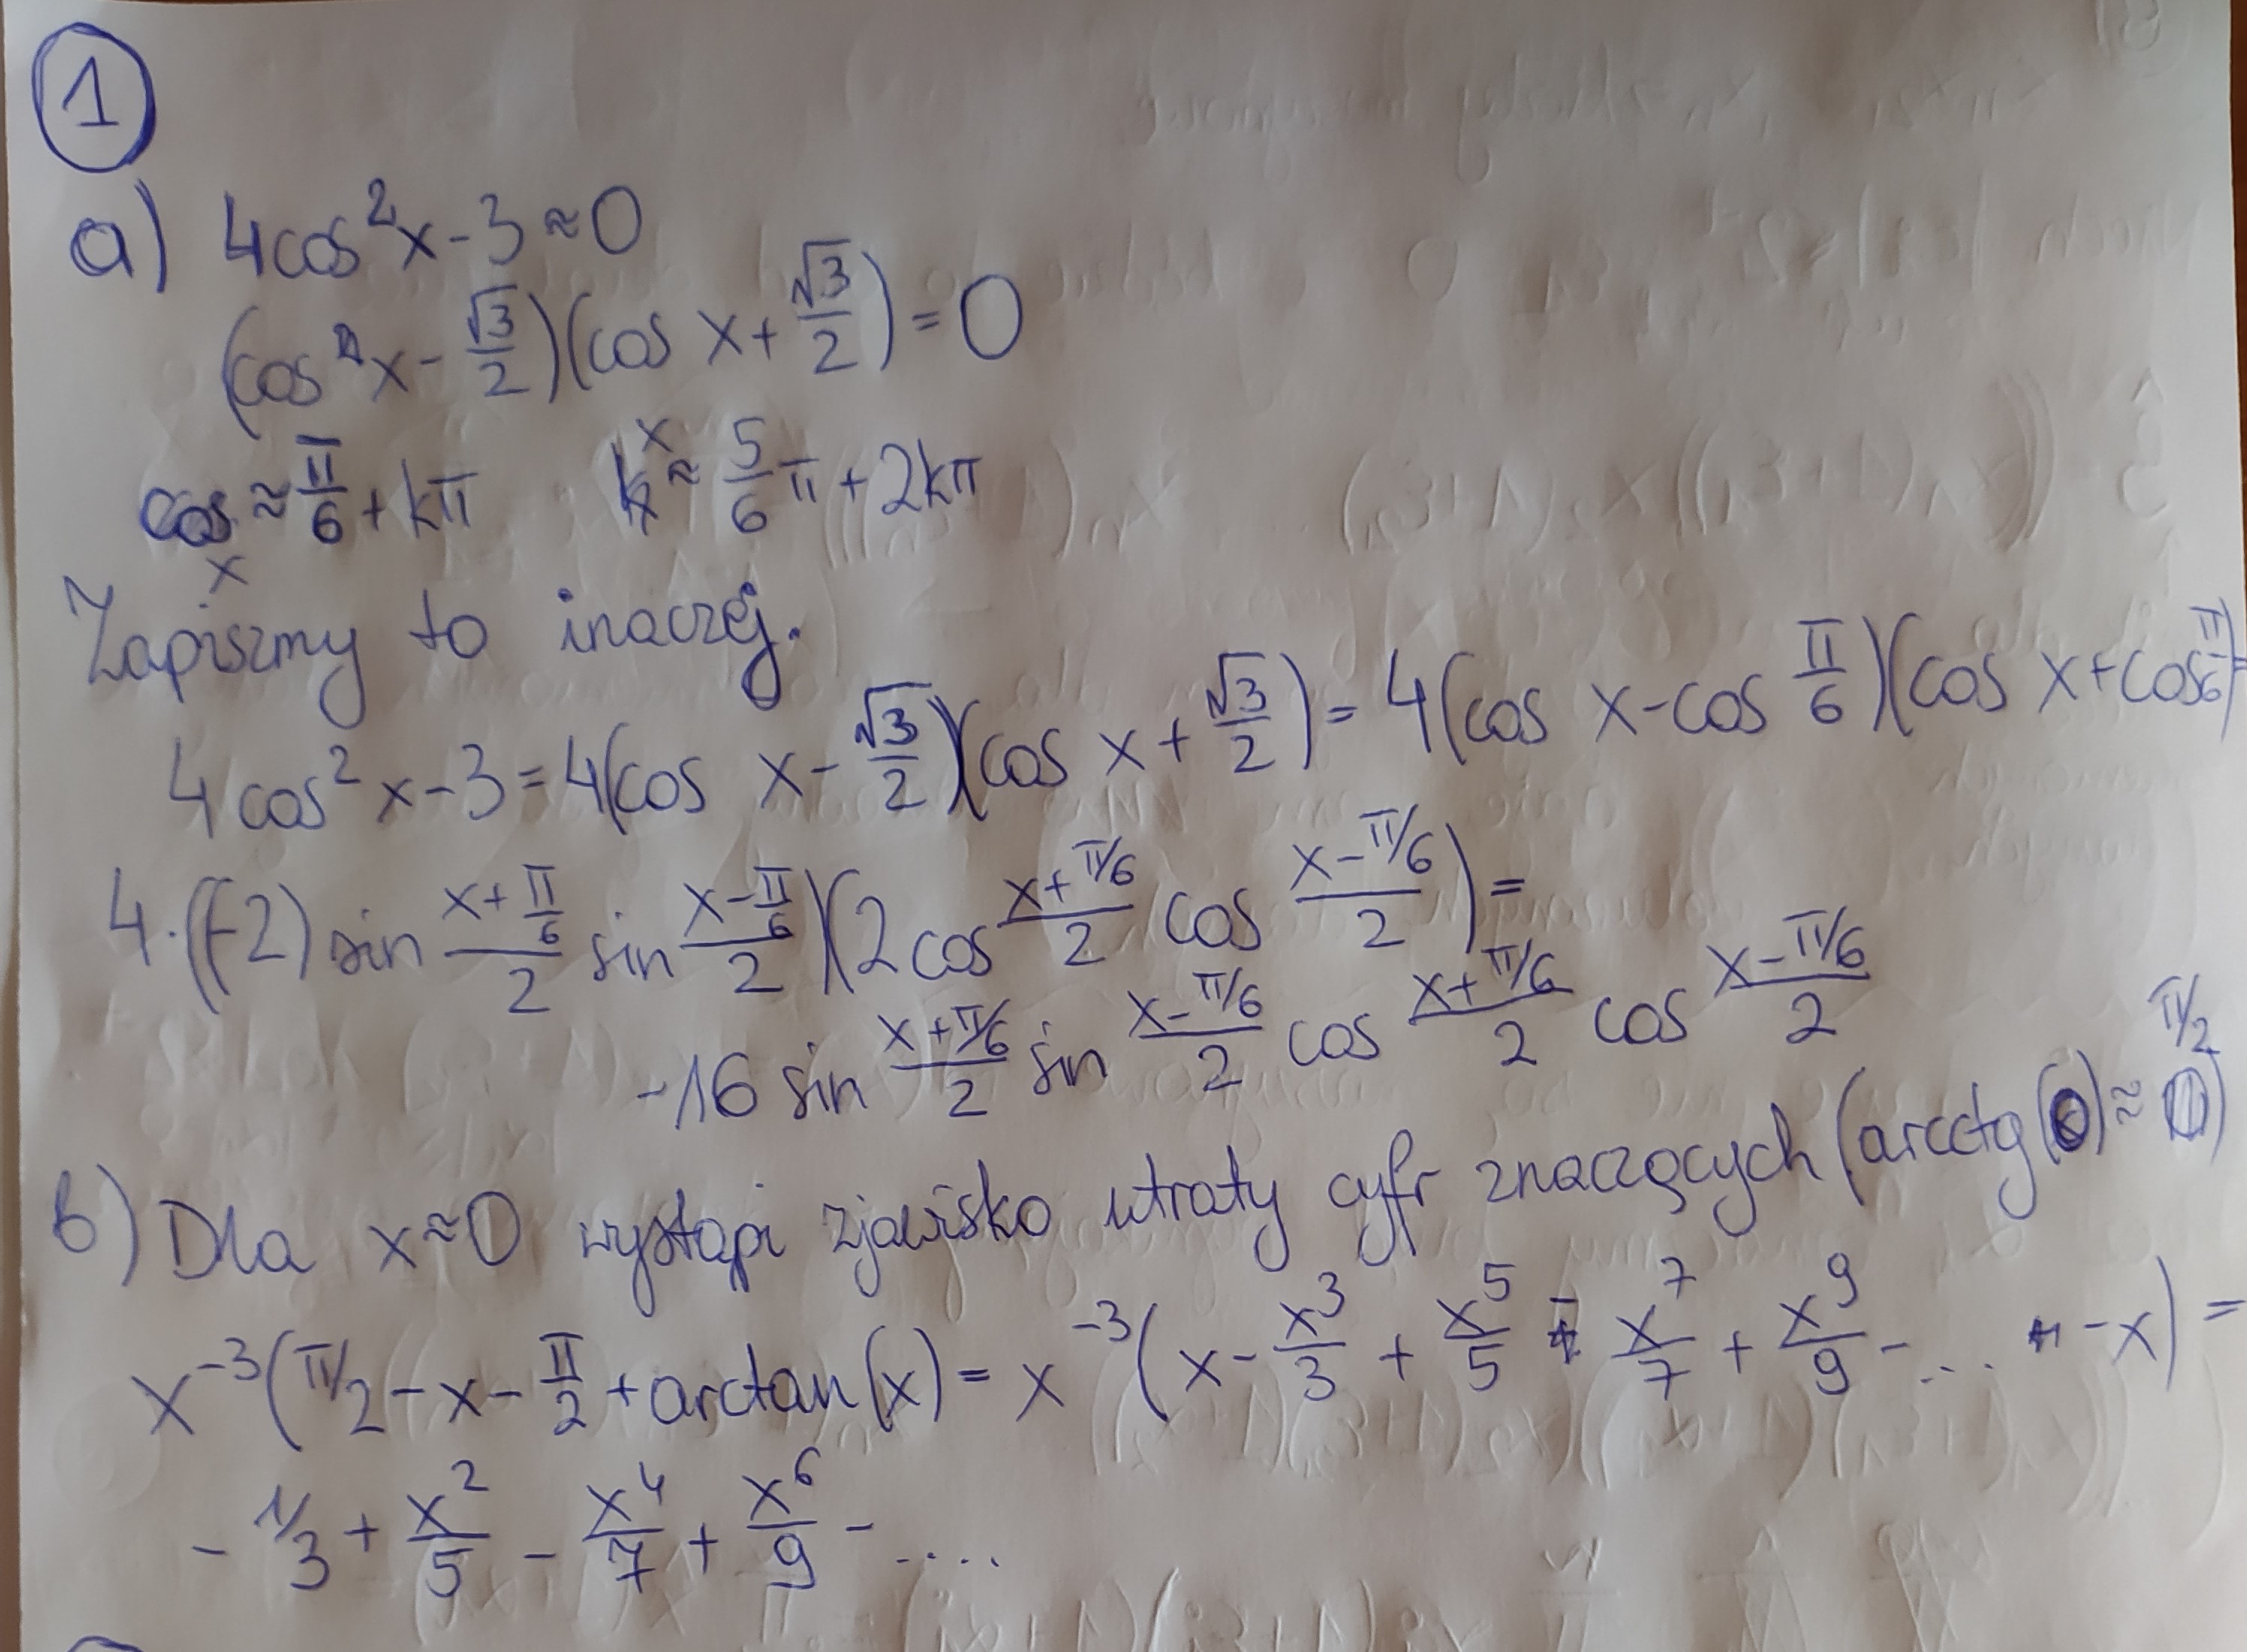 1
a) 4cos²x-3≈0
(cos x-√3/2)(cos x+√3/2)=0
x≈π/6+kπ x≈5/6π+2kπ
Zapiszmy to inaczej.
4cos²x-3=4(cos x-√3/2)(cos x+√3/2)=4(cos x-cos π/6)(cos x+cos π/6)=
4·((-2) sin (x+π/6)/2 sin (x-π/6)/2)(2cos (x+π/6)/2 cos (x-π/6)/2)=
-16 sin (x+π/6)/2 sin (x-π/6)/2 cos (x+π/6)/2 cos (x-π/6)/2
b) Dla x≈0 wystąpi zjawisko utraty cyfr znaczących (arcctg(0)≈π/2)
x⁻³(π/2-x-π/2+arctan(x)=x⁻³(x-x³/3+x⁵/5-x⁷/7+x⁹/9-... -x)=
-1/3+x²/5-x⁴/7+x⁶/9-....